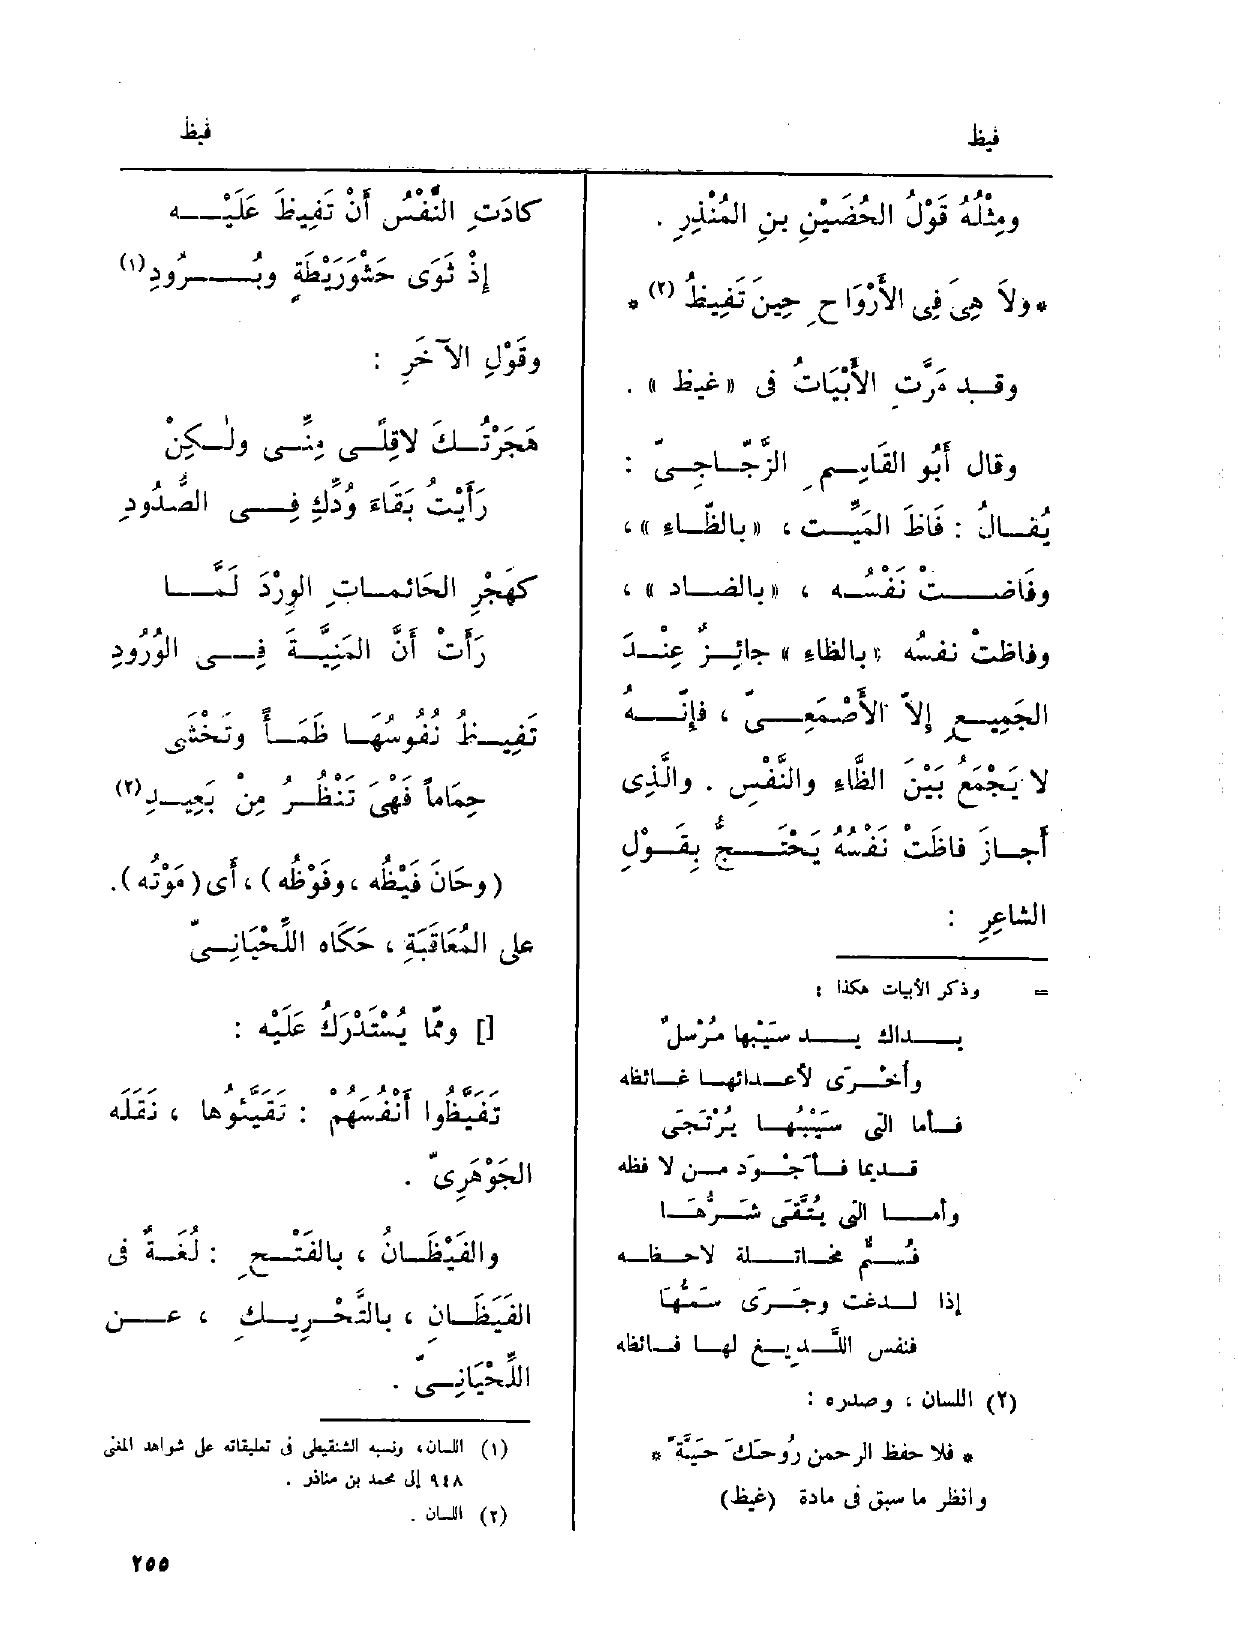 فيظ
فيظ
ومِثْلُهُ قَوْلُ الحُضَيْنِ بنِ المُنْذِرِ .
* ولاَ هِيَ فِى الأَرْوَاحِ حِينَ تَفِيظُ (٢) *
وقد مَرَّت الأَبْيَاتُ فى «غيظ» .
وقال أَبُو القَاسِمِ الزَّجّاجِىّ :
يُقالُ : فَاظَ المَيِّت ، «بالظّاءِ» ،
وفَاضت نَفْسُه ، «بالضاد» ،
وفاظتْ نفسُه «بالظاء» جائِزٌ عِنْدَ
الجَمِيعِ إِلاّ الأَصْمَعِىّ ، فإِنّهُ
لا يَجْمَعُ بَيْنَ الظَّاءِ والنَّفْسِ . والَّذِى
أَجازَ فاظَتْ نَفْسُهُ يَحْتَجُّ بِقَوْلِ
الشاعِرِ :
= وذكر الأبيات هكذا :
يداك يد سَيْبها مُرْسلٌ
وأُخْرَى لأعدائها غائظه
فأما التى سَيْبُها يُرْتَجَى
قديما فأَجْوَد من لا فظه
وأما التى يُتَّقَى شَرُّهَا
فسُمٌّ مخاتلة لاحظه
إذا لدغت وجَرَى سَمُّهَا
فنفس اللَّدِيغ لها فائظه
(٢) اللسان ، وصدره :
* فلا حفظ الرحمن رُوحَكَ حَيَّةً *
وانظر ما سبق فى مادة (غيظ)
كادَتِ النَّفْسُ أَنْ تَفِيظَ عَلَيْه
إِذْ ثَوَى حَشْوَرَيْطَةٍ وبُرُودِ (١)
وقَوْلِ الآخَرِ :
هَجَرْتُكَ لاقِلًى مِنِّى ولٰكِنْ
رَأَيْتُ بَقَاءَ وُدِّكِ فِى الصُّدُودِ
كهَجْرِ الحَائماتِ الوِرْدَ لَمَّا
رَأَتْ أَنَّ المَنِيَّةَ فِى الوُرُودِ
تَفِيظُ نُفُوسُهَا ظَمَأً وتَخْشَى
حِمَاماً فَهْىَ تَنْظُرُ مِنْ بَعِيدِ (٢)
(وحَانَ فَيْظُه ، وفَوْظُه) ، أَى (مَوْتُه).
على المُعَاقَبَةِ ، حَكَاه اللِّحْيَانِىّ
[] ومّما يُسْتَدْرَكُ عَلَيْه :
تَفَيَّظُوا أَنْفُسَهُمْ : تَقَيَّئُوها ، نَقَلَه
الجَوْهَرِىّ .
والفَيْظَانُ ، بالفَتْحِ : لُغَةٌ فى
الفَيَظَانِ ، بالتَّحْرِيكِ ، عن
اللِّحْيَانِىّ .
(١) اللسان، ونسبه الشنقيطى فى تعليقاته على شواهد المغنى
٩٤٨ إلى محمد بن مناذر .
(٢) اللسان .
٢٥٥